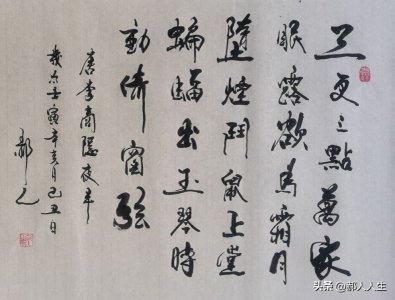 三更三點萬家
眠露欲為霜月
墮煙鬥鼠上堂
蝙蝠出玉琴時
動倚窗弦
唐李商隱夜半
歲次壬寅辛亥月己丑日
郝
头条 @郝人人生